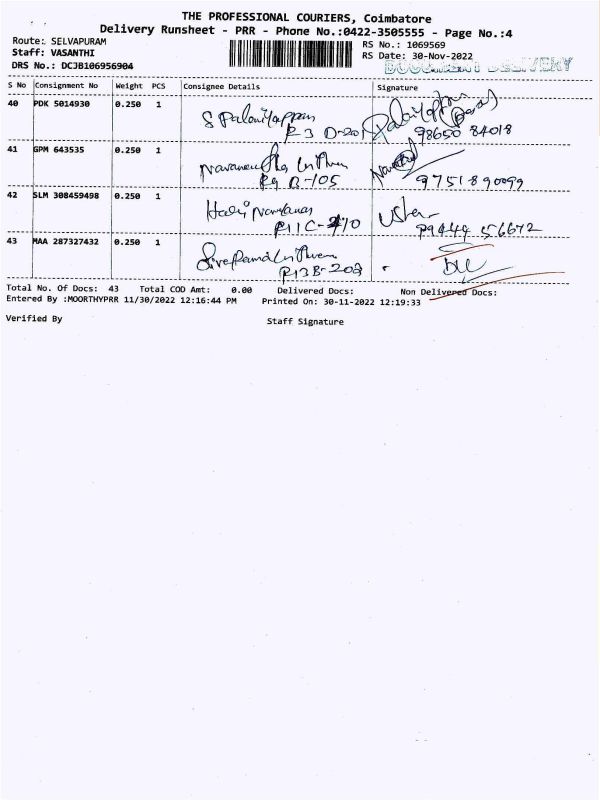 THE PROFESSIONAL COURIERS, Coimbatore
Delivery Runsheet - PRR - Phone No.:0422-3505555 - Page No.:4
Route: SELVAPURAM
RS No.: 1069569
Staff: VASANTHI
RS Date: 30-Nov-2022
DRS No.: DCJB106956904
DOCUMENT DELIVERY
S No Consignment No Weight PCS Consignee Details Signature
40 PDK 5014930 0.250 1 S Palaniyappan
R3 D-201 98650 84018
41 GPM 643535 0.250 1
R9 B-105 9751890099
42 SLM 308459498 0.250 1 Usha
R11C-
43 MAA 287327432 0.250 1
R13B-203
Total No. Of Docs: 43 Total COD Amt: 0.00 Delivered Docs: Non Delivered Docs:
Entered By :MOORTHYPRR 11/30/2022 12:16:44 PM Printed On: 30-11-2022 12:19:33
Verified By Staff Signature